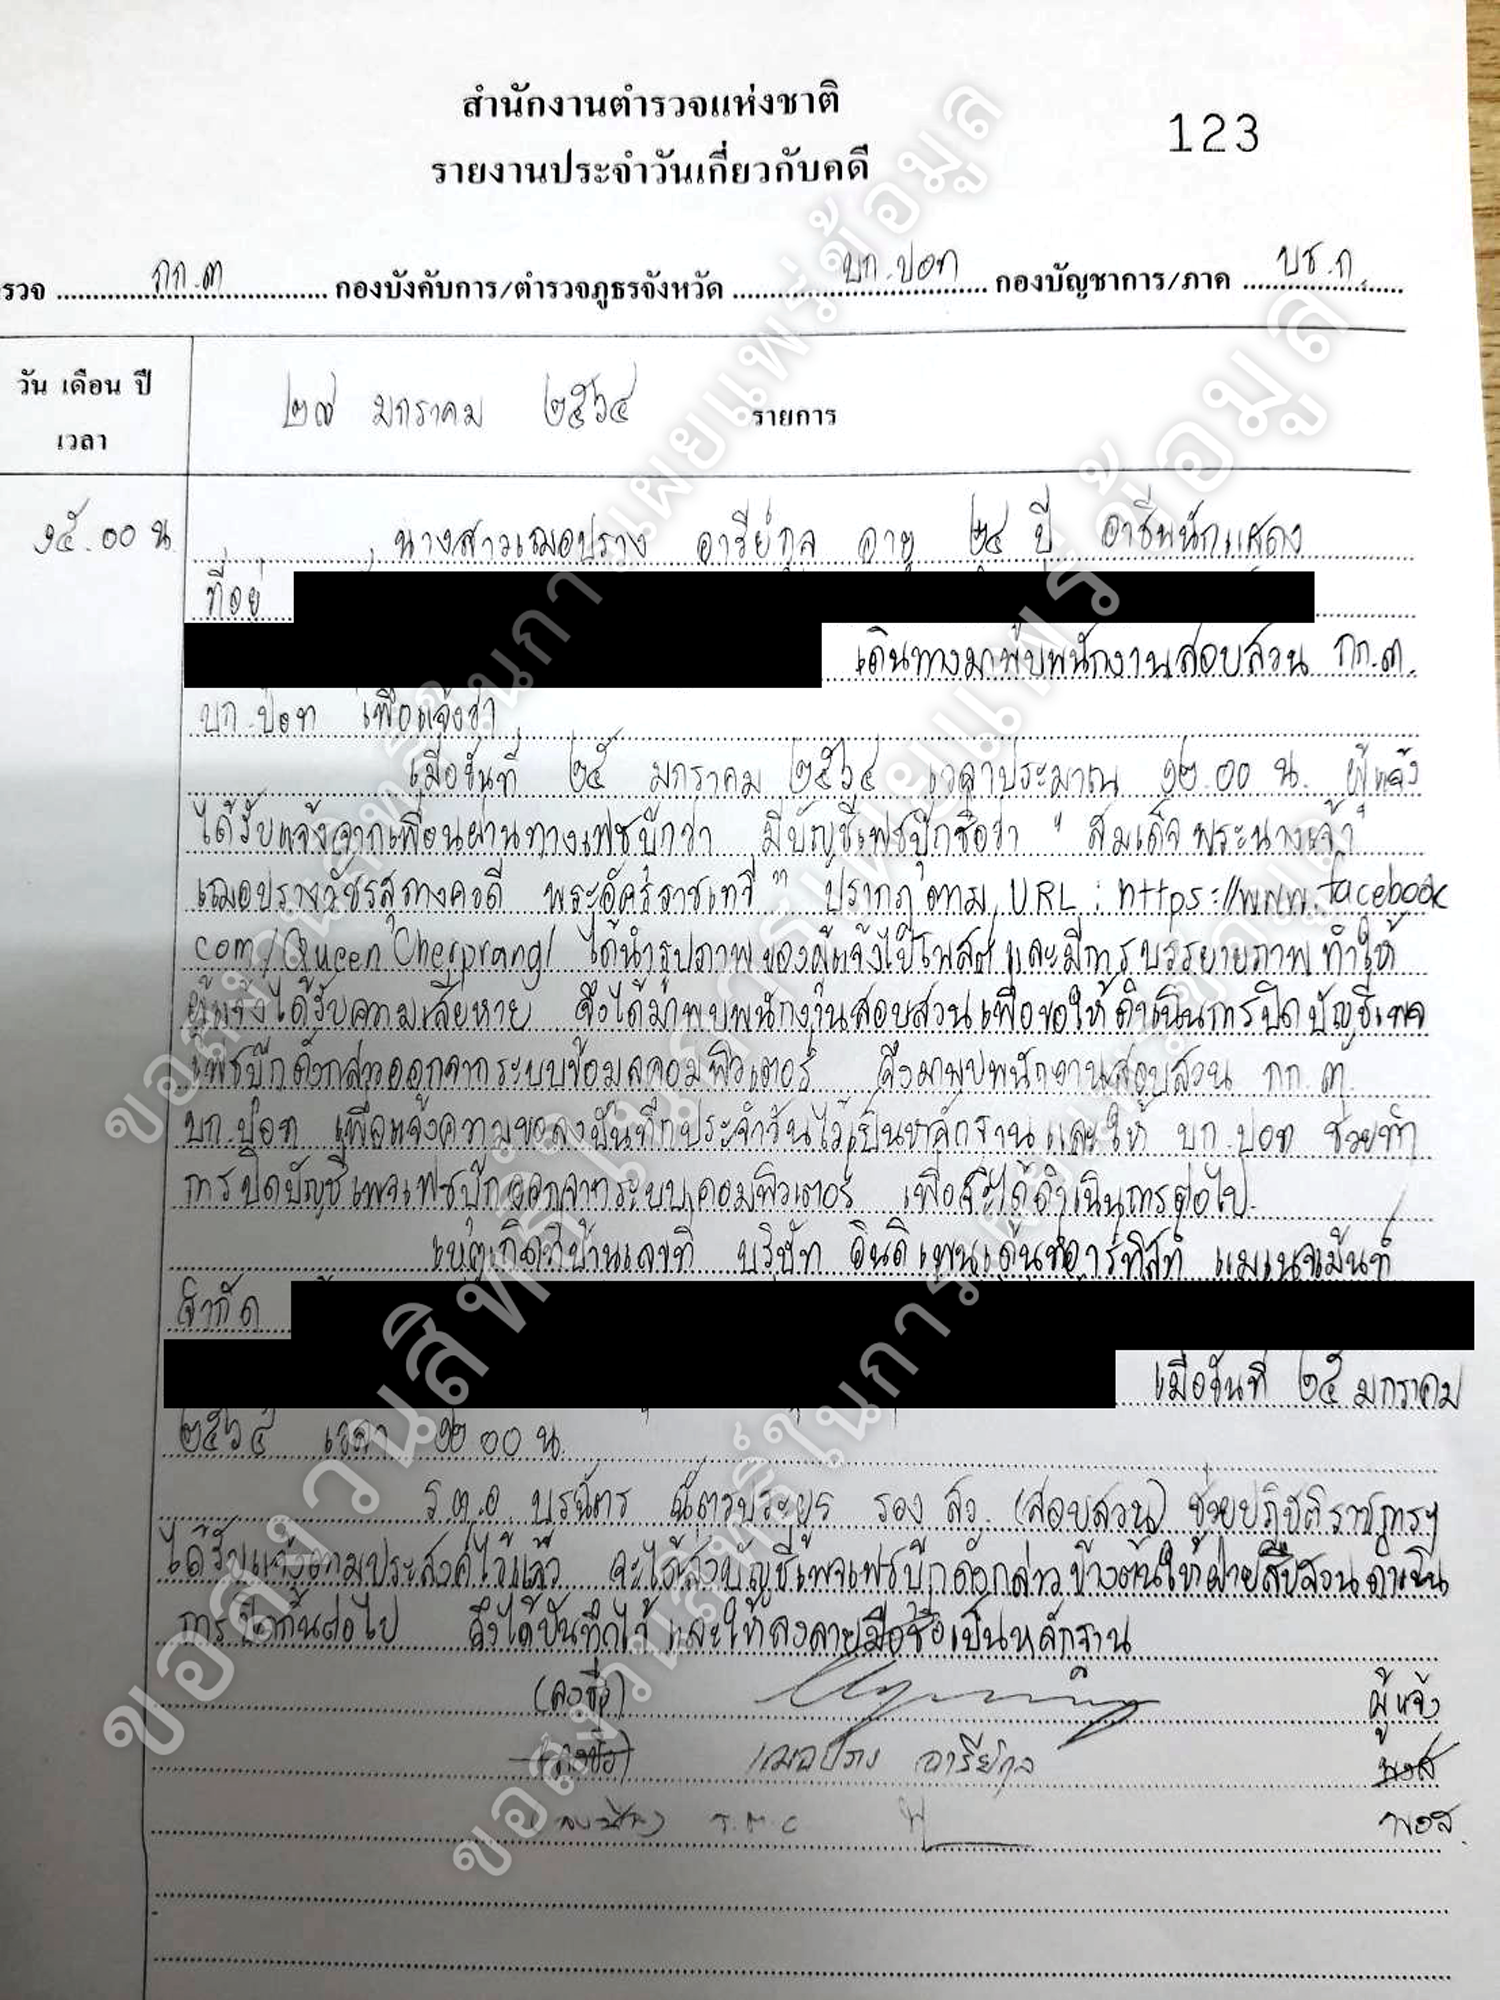 สำนักงานตำรวจแห่งชาติ
123
รายงานประจำวันเกี่ยวกับคดี
รวจ กก.๓ กองบังคับการ/ตำรวจภูธรจังหวัด บก.ปอท กองบัญชาการ/ภาค บช.ก.
วัน เดือน ปี
เวลา
๒๗ มกราคม ๒๕๖๔ รายการ
๑๕.๐๐ น. นางสาวเฌอปราง อารีย์กุล อายุ ๒๔ ปี อาชีพนักแสดง
ที่อยู่
เดินทางมาพบพนักงานสอบสวน กก.๓.
บก.ปอท เพื่อแจ้งว่า
เมื่อวันที่ ๒๕ มกราคม ๒๕๖๔ เวลาประมาณ ๑๒.๐๐ น. ผู้แจ้ง
ได้รับแจ้งจากเพื่อนผ่านทางเฟซบุ๊กว่า มีบัญชีเฟซบุ๊กชื่อว่า " สมเด็จพระนางเจ้า
เฌอปรางวัชรสุทางคอดี พระอัครราชเทวี " ปรากฏตาม URL : https://www.facebook
com/QueenCherprang/ ได้นำรูปภาพของผู้แจ้งไปโพสต์และมีการบรรยายภาพทำให้
ผู้แจ้งได้รับความเสียหาย จึงได้มาพบพนักงานสอบสวนเพื่อขอให้ดำเนินการปิดบัญชีเพจ
เฟซบุ๊กดังกล่าวออกจากระบบข้อมูลคอมพิวเตอร์ จึงมาพบพนักงานสอบสวน กก.๓.
บก.ปอท เพื่อแจ้งความขอลงบันทึกประจำวันไว้เป็นหลักฐานและให้ บก.ปอท ช่วยทำ
การปิดบัญชีเพจเฟซบุ๊กออกจากระบบคอมพิวเตอร์ เพื่อจะได้ดำเนินการต่อไป
เหตุเกิดที่บ้านเลขที่ บริษัท อินดิเพนเด้นท์อาร์ทิสท์ แมเนจเม้นท์
จำกัด
เมื่อวันที่ ๒๕ มกราคม
๒๕๖๔ เวลา ๑๒.๐๐ น.
ร.ต.อ. บรฉัตร ฉัตรประยูร รอง สว. (สอบสวน) ช่วยปฏิบัติราชการฯ
ได้รับแจ้งตามประสงค์ไว้แล้ว จะได้ส่งบัญชีเพจเฟซบุ๊กดังกล่าวข้างต้นให้ฝ่ายสืบสวนดำเนิน
การปิดกั้นต่อไป จึงได้บันทึกไว้ และให้ลงลายมือชื่อเป็นหลักฐาน
(ลงชื่อ) ผู้แจ้ง
(ลงชื่อ) เฌอปราง อารีย์กุล พงส
(ลงชื่อ) ร.ต.อ. พงส.
ขอสงวนสิทธิ์ในการเผยแพร่ข้อมูล
ขอสงวนสิทธิ์ในการเผยแพร่ข้อมูล